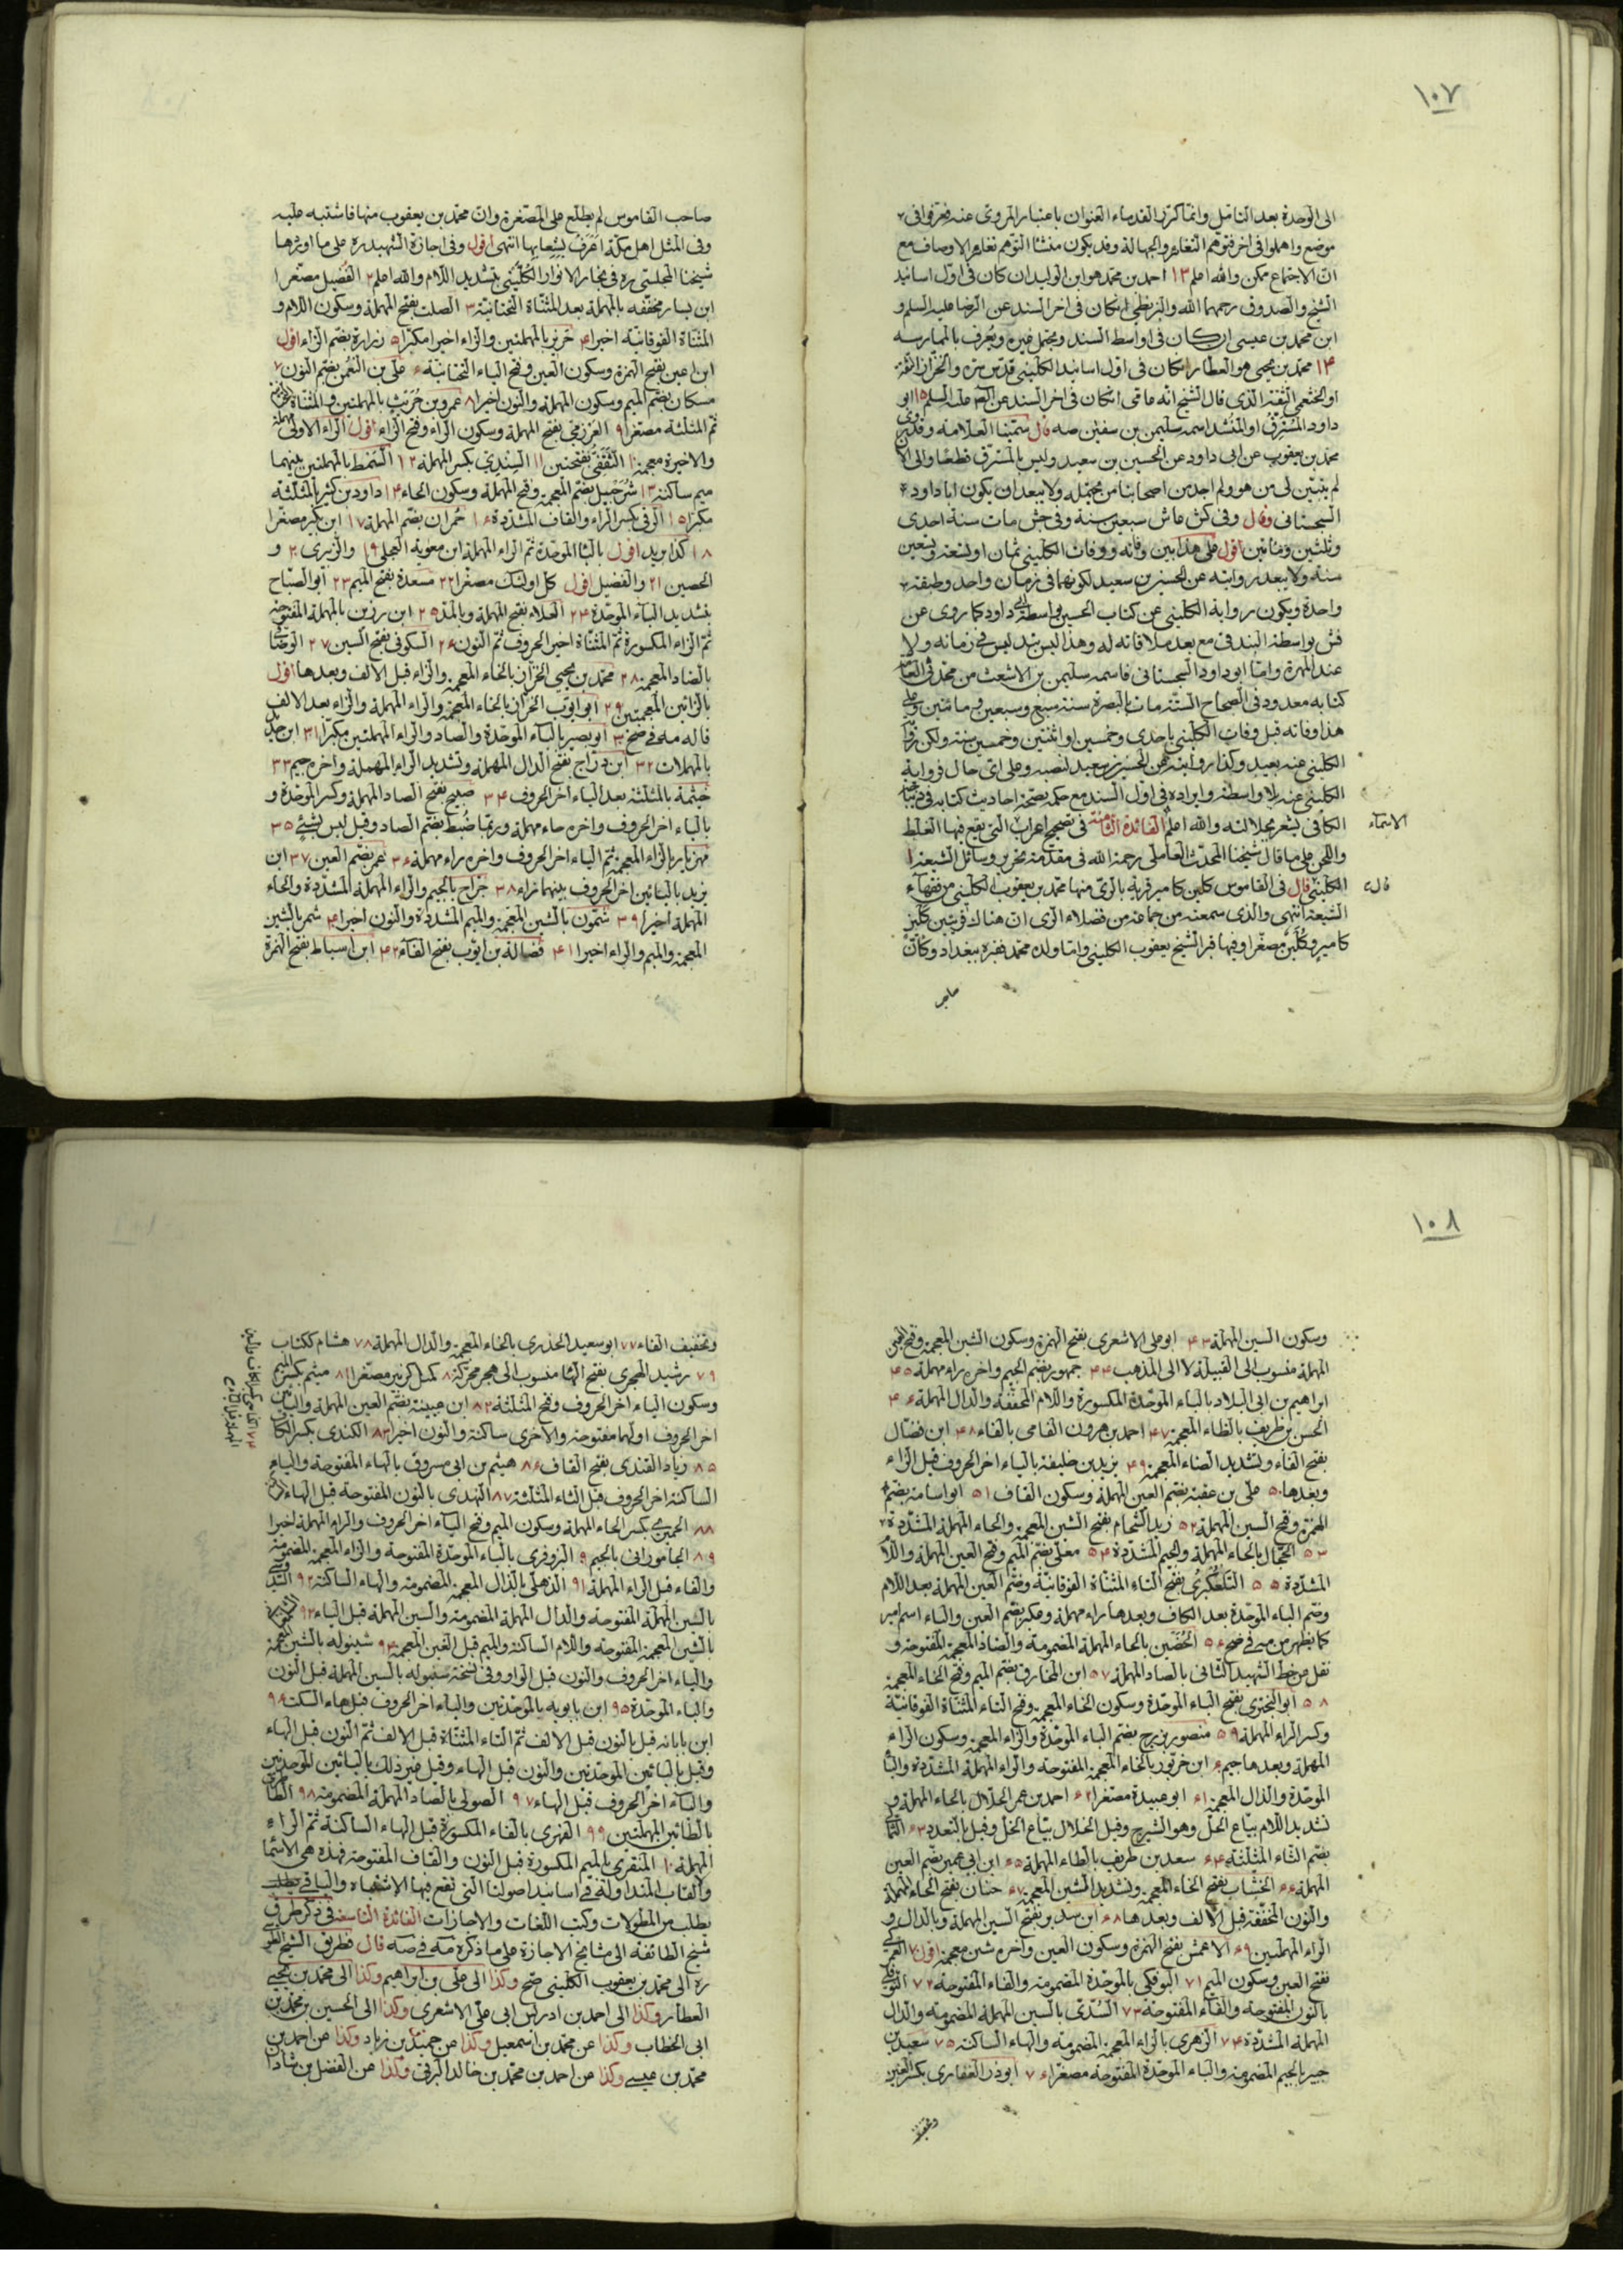 ١٠٧
الى الوحدة بعد التامّل وانما كرّر القدماء العنوان باعتبار المروى عنه فعرّفوا فى
موضع واهملوا فى اخر فتوهم التغاير والجهالة وقد يكون منشأ التوهم تغاير الاوصاف مع
انّ الاجتماع ممكن والله اعلم ١٣ احمد بن محمد هو ابن الوليد ان كان فى اوّل اسانيد
الشيخ والصدوق رحمهما الله والبزنطى ان كان فى اخر السند عن الرضا عليه السلم و
ابن محمد بن عيسى ان كان فى اواسط السند ويحتمل غيره ويعرف بالممارسه
١٤ محمد بن يحيى هو العطار ان كان فى اوّل اسانيد الكلينى قدّس سرّه والخزاز الثقة
او الخثعمى الثقة الذى قال الشيخ انه عامى ان كان فى اخر السند عن الصّ عليه السلم ١٥ ابو
داود المسترق او المنشد اسمه سليمن بن سفين صه قال سمّينا العلامه وقد روى
محمد بن يعقوب عن ابى داود عن الحسين بن سعيد وليس بالمسترق قطعا والى الان
لم يتبيّن لى من هو ولم اجد من اصحابنا من يحتمله ولا يبعد ان يكون ابا داود
السجستانى وقال وفى كش عاش سبعين سنة وفى جش مات سنة احدى
وثلثين ومأتين اقول على هذا بين وفاته ووفات الكلينى ثمان او تسعة وتسعين
سنة ولا يبعد روايته عن الحسين بن سعيد لكونهما فى زمان واحد وطبقة
واحدة ويكون رواية الكلينى عن كتاب الحسين بواسطة ابى داود كما روى عن
فش بواسطة البندقى مع بعد ملاقاته له وهذا ليس بتدليس فى زمانه ولا
عند المهرة وامّا ابو داود السجستانى فاسمه سليمن بن الاشعث من محدثى العامّة
كتابه معدود فى الصحاح الستّة مات بالبصرة سنة سبع وسبعين ومأتين وعلى
هذا وفاته قبل وفات الكلينى باحدى وخمسين او اثنتين وخمسين سنة ولكن رواية
الكلينى عنه بعيد وكذا روايته عن الحسين بن سعيد لنصبه وعلى اىّ حال فرواية
الكلينى عنه بلا واسطة وايراده فى اوّل السند مع حكمه بصحّة احاديث كتابه فى ديباجة
الكافى يشعر بجلالته والله اعلم الفائدة الثامنة فى تصحيح اعراب التى يقع فيها الغلط
الاسماء
واللحن على ما قال شيخنا المحدّث العاملى رحمة الله فى مقدّمة تحرير وسائل الشيعة ١
الكلينى قال فى القاموس كلين كامير قرية بالرىّ منها محمد بن يعقوب الكلينى من فقهاء
قال
الشيعة انتهى والذى سمعته من جماعة من فضلاء الرى انّ هناك قريتين كلين
كامير وكُلَين مصغّرا وفيها قبر الشيخ يعقوب الكلينى وامّا ولده محمد فقبره ببغداد وكأنّ
صاحب
صاحب القاموس لم يطلع على المصغّرة وانّ محمد بن يعقوب منها فاشتبه عليه
وفى المثل اهل مكّة اَعرَفُ بِشِعابِها انتهى اقول وفى اجازة الشهيد ره على ما اوردها
شيخنا المجلسى ره فى بحار الانوار الكُلّينى بتشديد اللام والله اعلم ٢ الفُضيل مصغّرا
ابن يسار مخفّفه بالمهملة بعد المثنّاة التحتانيّة ٣ الصلت بفتح المهملة وسكون اللام و
المثنّاة الفوقانيّة اخيرا ٤ حَرِيز بالمهملتين والزاء اخيرا مكبّرا ٥ زرارة بضمّ الزاء اقول
ابن اعين بفتح الهمزة وسكون العين وفتح الياء التحتانيّة ۶ علىّ بن النُّعمن بضمّ النون ٧
مسكان بضمّ الميم وسكون المهملة والنون اخيرا ٨ عمرو بن حُرَيث بالمهملتين والمثنّاة
ثم المثلّثة مصغّرا ٩ العَرزَمى بفتح المهملة وسكون الراء وفتح الزاء اقول الراء الاولى مهملة
والاخيرة معجمة ١٠ الثَّقَفى بفتحتين ١١ السِندىّ بكسر المهملة ١٢ السّمط بالمهملتين بينهما
ميم ساكنة ١٣ شُرَحبيل بضمّ المعجمة وفتح المهملة وسكون الحاء ١٤ داود بن كثير بالمثلّثة
مكبّرا ١٥ الرقى بكسر الراء والقاف المشدّدة ١۶ حُمران بضمّ المهملة ١٧ ابن بكير مصغّرا
١٨ كذا بريد اقول بالباء الموحّدة ثمّ الراء المهملة ابن معوية العجلى ١٩ والزبرى ٢٠ و
الحصين ٢١ والفضيل اقول كلّ اولئك مصغّرا ٢٢ مسعدة بفتح الميم ٢٣ ابو الصبّاح
بتشديد الباء الموحّدة ٢٤ العلاء بفتح المهملة وبالمدّ ٢٥ ابن رزين بالمهملة المفتوحة
ثمّ الزاء المكسورة ثمّ المثنّاة اخير الحروف ثمّ النون ٢۶ السكونى بفتح السين ٢٧ الوضّاء
بالضاد المعجمة ٢٨ محمد بن يحيى الخزّاز بالخاء المعجمة والزاء قبل الالف وبعدها اقول
بالزائين المعجمتين ٢٩ ابو ايّوب الخرّاز بالخاء المعجمة والراء المهملة والزاء بعد الالف
قاله مه فى ضح ٣٠ ابو بصير بالباء الموحّدة والصاد والراء المهملتين مكبّرا ٣١ ابن
بالمهملات ٣٢ ابن درّاج بفتح الدال المهملة وتشديد الراء المهملة واخره جيم ٣٣
خيثمة بالمثلّثة بعد الياء اخر الحروف ٣٤ صبيح بفتح الصاد المهملة وكسر الموحّدة و
بالياء اخر الحروف واخره حاء مهملة وربّما ضُبط بضمّ الصاد وقيل ليس بشئ ٣٥
مهزيار بالزاء المعجمة ثمّ الياء اخر الحروف واخره راء مهملة ٣۶ عمر بضمّ العين ٣٧ ابن
يزيد بالياءين اخر الحروف بينهما زاء ٣٨ جرّاح بالجيم والراء المهملة المشدّدة والحاء
المهملة اخيرا ٣٩ شمّون بالشين المعجمة والميم المشدّدة والنون اخيرا ٤٠ شمر بالشين
المعجمة والميم والراء اخيرا ٤١ فضالة بن ايّوب بفتح الفاء ٤٢ ابن اسباط بفتح الهمزة
١٠٨
وسكون السين المهملة ٤٣ ابو على الاشعرى بفتح الهمزة وسكون الشين المعجمة وفتح العين
المهملة منسوب الى القبيلة لا الى المذهب ٤٤ جمهور بضمّ الجيم واخره راء مهملة ٤٥
ابراهيم بن ابى البلاد بالباء الموحّدة المكسورة واللام المخفّفة والدال المهملة ٤۶
الحسن بن ظريف بالظاء المعجمة ٤٧ احمد بن هرون الفامى بالفاء ٤٨ ابن فضّال
بفتح الفاء وتشديد الضاء المعجمة ٤٩ يزيد بن خليفة بالياء اخر الحروف قبل الزاء
وبعدها ٥٠ علىّ بن عقبة بضمّ العين المهملة وسكون القاف ٥١ ابو اسامة بضمّ
الهمزة وفتح السين المهملة ٥٢ زيد الشحّام بفتح الشين المعجمة والحاء المهملة المشدّدة
٥٣ الحجّال بالحاء المهملة والجيم المشدّدة ٥٤ معلّى بضمّ الميم وفتح العين المهملة واللام
المشدّدة ٥٥ التَلعُكبرى بفتح التاء المثنّاة الفوقانيّة وضمّ العين المهملة بعد اللام
وضمّ الباء الموحّدة بعد الكاف وبعدها راء مهملة وعكبر بضمّ العين والباء اسم امير
كما يظهر من مه فى ضح ٥۶ الحُضَين بالحاء المهملة المضمومة والضاد المعجمة المفتوحة و
نقل من خطّ الشهيد الثانى بالصاد المهملة ٥٧ ابن المخارق بضمّ الميم وفتح الخاء المعجمة
٥٨ ابو البخترى بفتح الباء الموحّدة وسكون الخاء المعجمة وفتح التاء المثنّاة الفوقانيّة
وكسر الراء المهملة ٥٩ منصور بزرج بضمّ الباء الموحّدة والزاء المعجمة وسكون الراء
المهملة وبعدها جيم ۶٠ ابن خربوذ بالخاء المعجمة المفتوحة والراء المهملة المشدّدة والباء
الموحّدة والذال المعجمة ۶١ ابو عبيدة مصغّرا ۶٢ احمد بن عمر الحلّال بالحاء المهملة و
تشديد اللام بيّاع الحلّ وهو الشيرج وقيل الخلّال بيّاع الخلّ وقيل بالتعدد ۶٣ الثمالى
بضمّ الثاء المثلّثة ۶٤ سعد بن طريف بالطاء المهملة ۶٥ ابن ابى عمير بضمّ العين
المهملة ۶۶ الخشّاب بفتح الخاء المعجمة وتشديد الشين المعجمة ۶٧ حنان بفتح الحاء المهملة
والنون المخفّفة قبل الالف وبعدها ۶٨ ابن سدير بفتح السين المهملة وبالدال و
الراء المهملتين ۶٩ الاعمش بفتح الهمزة وسكون العين واخره شين معجمة اقول ٧٠ العمرى
بفتح العين وسكون الميم ٧١ البوفكى بالموحّدة المضمومة والفاء المفتوحة ٧٢ النوفلى
بالنون المفتوحة والفاء المفتوحة ٧٣ السُدّى بالسين المهملة المضمومة والدال
المهملة المشدّدة ٧٤ الزهرى بالزاء المعجمة المضمومة والهاء الساكنة ٧٥ سعيد بن
جبير بالجيم المضمومة والباء الموحّدة المفتوحة مصغّرا ٧۶ ابو ذر الغفارى بكسر الغين
وتخفيف
وتخفيف الفاء ٧٧ ابو سعيد الخدرى بالخاء المعجمة والدال المهملة ٧٨ هشام ككتاب
٧٩ رشيد الهجرى بفتح الهاء منسوب الى هجر محرّكة ٨٠ كميل كزبير مصغّرا ٨١ ميثم بكسر الميم
وسكون الياء اخر الحروف وفتح المثلّثة ٨٢ ابن عيينة بضمّ العين المهملة واليائين
اخر الحروف اولهما مفتوحة والاخرى ساكنة والنون اخيرا ٨٣ الكندى بكسر الكاف
٨٥ زياد القندى بفتح القاف ٨۶ هيثم بن ابى مسروق بالهاء المفتوحة والياء
الساكنة اخر الحروف قبل الثاء المثلّثة ٨٧ النهدى بالنون المفتوحة قبل الهاء
٨٨ الحميرى بكسر الحاء المهملة وسكون الميم وفتح الياء اخر الحروف والراء المهملة اخيرا
٨٩ الجامورانى بالجيم ٩٠ البزوفرى بالباء الموحّدة المفتوحة والزاء المعجمة المضمومة
والفاء قبل الراء المهملة ٩١ الذهلى بالذال المعجمة المضمومة والهاء الساكنة ٩٢
بالسين المهملة المفتوحة والدال المهملة المضمومة والسين المهملة قبل الياء ٩٣
بالشين المعجمة المفتوحة واللام الساكنة والميم قبل الغين المعجمة ٩٤ شينوله بالشين المعجمة
والياء اخر الحروف والنون قبل الواو وفى نسخة سنبوله بالسين المهملة قبل النون
والباء الموحّدة ٩٥ ابن بابويه بالموحّدتين والياء اخر الحروف قبل هاء السكت ٩۶
ابن باباته قيل بالنون قبل الالف ثمّ التاء المثنّاة قبل الالف ثمّ النون قبل الهاء
وقيل بالبائين الموحّدتين والنون قبل الهاء وقيل غير ذلك بالبائين الموحّدتين
والياء اخر الحروف قبل الهاء ٩٧ الصولى بالصاد المهملة المضمومة ٩٨
بالطائين المهملتين ٩٩ الفهرى بالفاء المكسورة قبل الهاء الساكنة ثمّ الراء
المهملة ١٠٠ المنقرى بالميم المكسورة قبل النون والقاف المفتوحة فهذه هى الاسماء
والقاب المتداولة فى اسانيد اصولنا التى تقع فيها الاشتباه والباقى
يطلب من المطولات وكتب اللغات والاجازات الفائدة التاسعة فى ذكر طرق
شيخ الطائفة الى مشايخ الاجازة على ما ذكره مه فى صه قال فطريق الشيخ الطوسى
ره الى محمد بن يعقوب الكلينى صح وكذا الى على بن ابراهيم وكذا الى محمد بن يحيى
العطار وكذا الى احمد بن ادريس ابى علىّ الاشعرى وكذا الى الحسين بن محمد بن
ابى الخطاب وكذا عن محمد بن اسمعيل وكذا عن حميد بن زياد وكذا عن احمد بن
محمد بن عيسى وكذا عن احمد بن محمد بن خالد البرقى وكذا عن الفضل بن شاذا